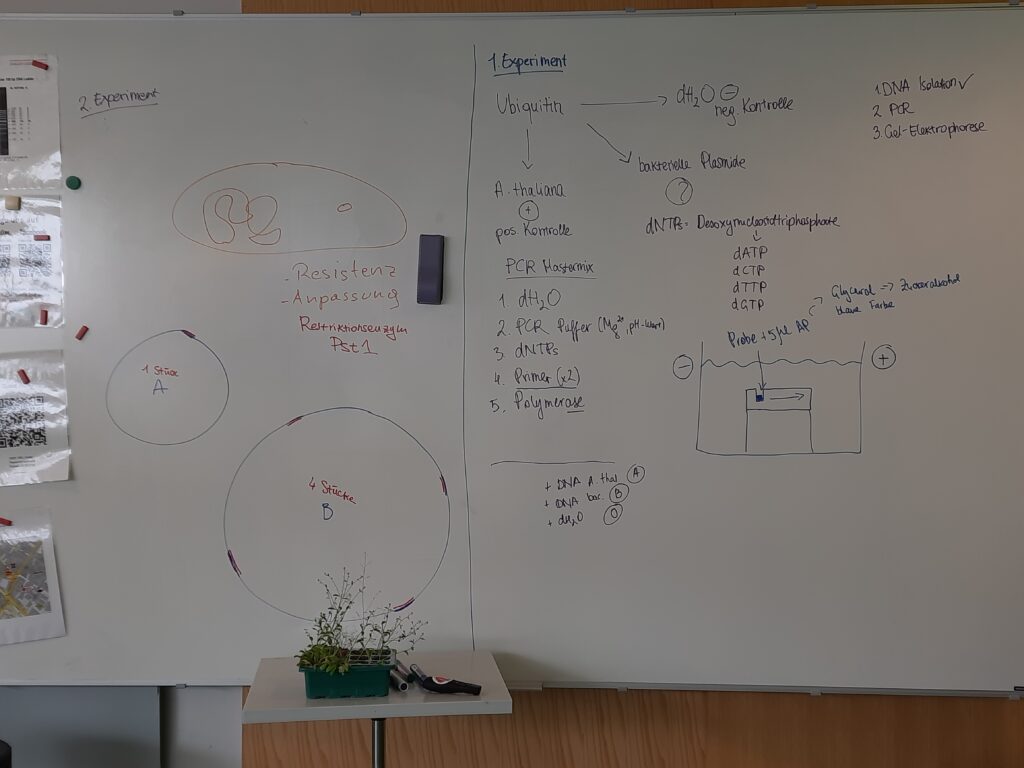 2. Experiment
- Resistenz
- Anpassung
Restriktionsenzym
Pst1
1 Stück
A
4 Stücke
B
1. Experiment
Ubiquitin → dH₂O ⊖
neg. Kontrolle
bakterielle Plasmide
?
A. thaliana
+
pos. Kontrolle
PCR Mastermix
1. dH₂O
2. PCR Puffer (Mg²⁺, pH-Wert)
3. dNTPs
4. Primer (x2)
5. Polymerase
+ DNA A. thal. A
+ DNA bac. B
+ dH₂O
1. DNA Isolation ✓
2. PCR
3. Gel-Elektrophorese
dNTPs = Desoxynucleosidtriphosphate
dATP
dCTP
dTTP
dGTP
Glycerol → Zuckeralkohol
blaue Farbe
Probe + 5 µl AP
−
+